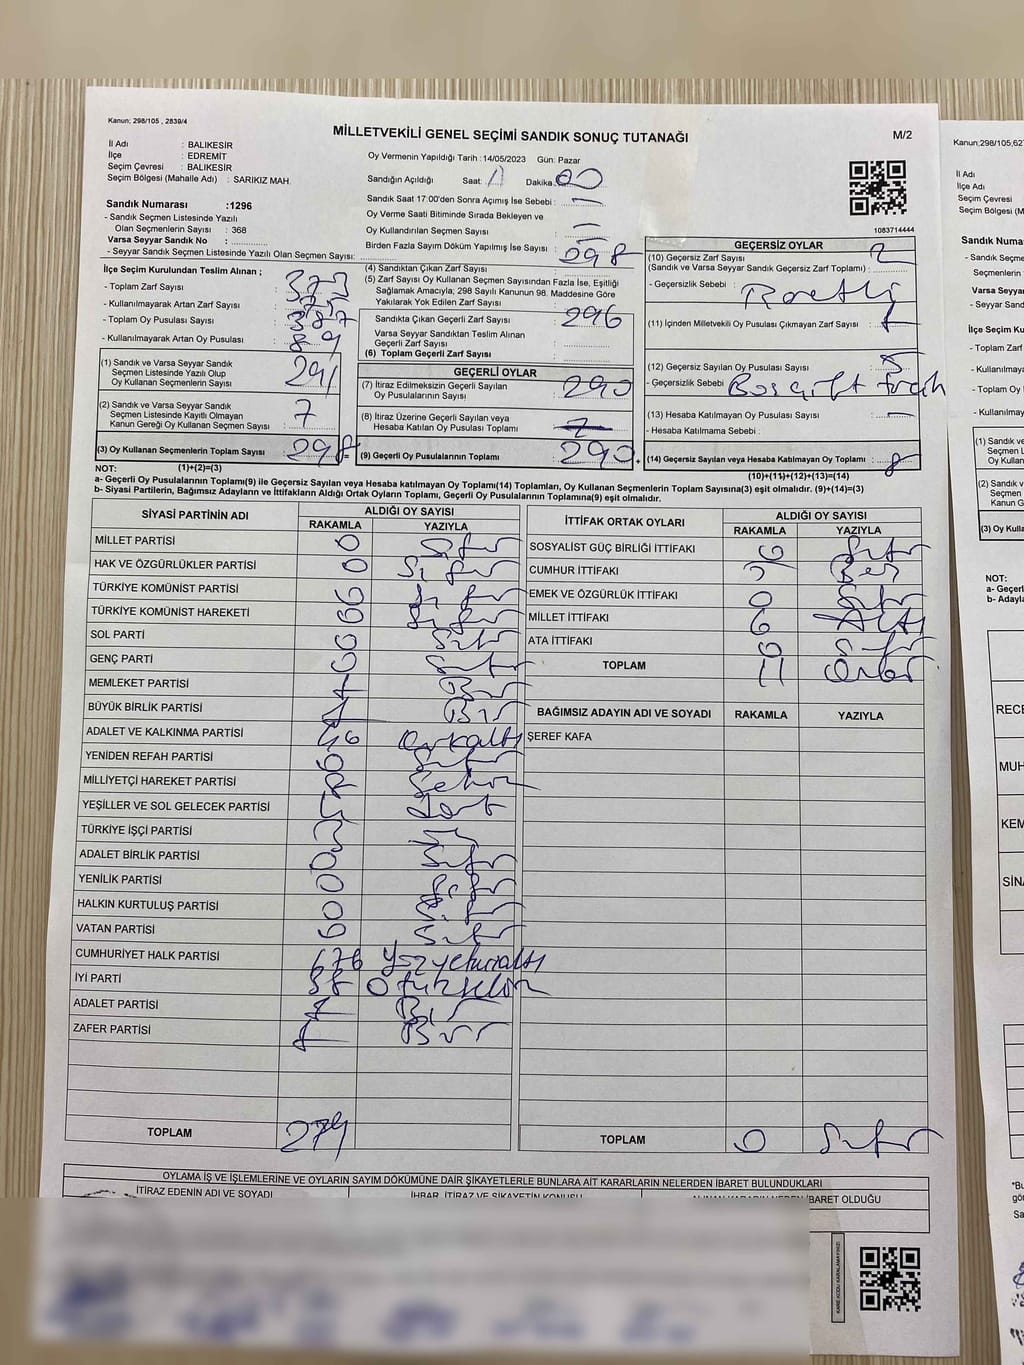 Kanun; 298/105 , 2839/4
MİLLETVEKİLİ GENEL SEÇİMİ SANDIK SONUÇ TUTANAĞI
M/2
İl Adı : BALIKESİR
İlçe : EDREMİT
Seçim Çevresi : BALIKESİR
Seçim Bölgesi (Mahalle Adı) : SARIKIZ MAH.
Sandık Numarası :1296
- Sandık Seçmen Listesinde Yazılı
Olan Seçmenlerin Sayısı : 368
Varsa Seyyar Sandık No :
- Seyyar Sandık Seçmen Listesinde Yazılı Olan Seçmen Sayısı:
Oy Vermenin Yapıldığı Tarih :14/05/2023 Gün: Pazar
Sandığın Açıldığı Saat: Dakika: 00
Sandık Saat 17:00'den Sonra Açımış İse Sebebi : —
Oy Verme Saati Bitiminde Sırada Bekleyen ve
Oy Kullandırılan Seçmen Sayısı : —
Birden Fazla Sayım Döküm Yapılmış İse Sayısı : —
1083714444
İlçe Seçim Kurulundan Teslim Alınan ;
- Toplam Zarf Sayısı : 373
- Kullanılmayarak Artan Zarf Sayısı : 75
- Toplam Oy Pusulası Sayısı : 387
- Kullanılmayarak Artan Oy Pusulası : 89
(1) Sandık ve Varsa Seyyar Sandık
Seçmen Listesinde Yazılı Olup
Oy Kullanan Seçmenlerin Sayısı : 291
(2) Sandık ve Varsa Seyyar Sandık
Seçmen Listesinde Kayıtlı Olmayan
Kanun Gereği Oy Kullanan Seçmen Sayısı : 7
(3) Oy Kullanan Seçmenlerin Toplam Sayısı : 298
(1)+(2)=(3)
(4) Sandıktan Çıkan Zarf Sayısı : 298
(5) Zarf Sayısı Oy Kullanan Seçmen Sayısından Fazla İse, Eşitliği
Sağlamak Amacıyla; 298 Sayılı Kanunun 98. Maddesine Göre
Yakılarak Yok Edilen Zarf Sayısı :
Sandıkta Çıkan Geçerli Zarf Sayısı : 296
Varsa Seyyar Sandıktan Teslim Alınan
Geçerli Zarf Sayısı :
(6) Toplam Geçerli Zarf Sayısı :
GEÇERLİ OYLAR
(7) İtiraz Edilmeksizin Geçerli Sayılan
Oy Pusulalarının Sayısı : 290
(8) İtiraz Üzerine Geçerli Sayılan veya
Hesaba Katılan Oy Pusulası Toplamı :
(9) Geçerli Oy Pusulalarının Toplamı : 290
GEÇERSİZ OYLAR
(10) Geçersiz Zarf Sayısı : 2
(Sandık ve Varsa Seyyar Sandık Geçersiz Zarf Toplamı) :
- Geçersizlik Sebebi :
(11) İçinden Milletvekili Oy Pusulası Çıkmayan Zarf Sayısı : 1
(12) Geçersiz Sayılan Oy Pusulası Sayısı : 5
- Geçersizlik Sebebi : Boş çift
(13) Hesaba Katılmayan Oy Pusulası Sayısı : —
- Hesaba Katılmama Sebebi :
(14) Geçersiz Sayılan veya Hesaba Katılmayan Oy Toplamı : 8
(10)+(11)+(12)+(13)=(14)
NOT:
a- Geçerli Oy Pusulalarının Toplamı(9) ile Geçersiz Sayılan veya Hesaba katılmayan Oy Toplamı(14) Toplamları, Oy Kullanan Seçmenlerin Toplam Sayısına(3) eşit olmalıdır. (9)+(14)=(3)
b- Siyasi Partilerin, Bağımsız Adayların ve İttifakların Aldığı Ortak Oyların Toplamı, Geçerli Oy Pusulalarının Toplamına(9) eşit olmalıdır.
SİYASİ PARTİNİN ADI ALDIĞI OY SAYISI
RAKAMLA YAZIYLA
MİLLET PARTİSİ 0 Sıfır
HAK VE ÖZGÜRLÜKLER PARTİSİ 0 Sıfır
TÜRKİYE KOMÜNİST PARTİSİ 0 Sıfır
TÜRKİYE KOMÜNİST HAREKETİ 0 Sıfır
SOL PARTİ 0 Sıfır
GENÇ PARTİ 0 Sıfır
MEMLEKET PARTİSİ 1 Bir
BÜYÜK BİRLİK PARTİSİ 1 Bir
ADALET VE KALKINMA PARTİSİ 46 kırkaltı
YENİDEN REFAH PARTİSİ 0 Sıfır
MİLLİYETÇİ HAREKET PARTİSİ 8 Sekiz
YEŞİLLER VE SOL GELECEK PARTİSİ
TÜRKİYE İŞÇİ PARTİSİ
ADALET BİRLİK PARTİSİ 0 Sıfır
YENİLİK PARTİSİ 0 Sıfır
HALKIN KURTULUŞ PARTİSİ 0 Sıfır
VATAN PARTİSİ 0 Sıfır
CUMHURİYET HALK PARTİSİ 176 Yüzyetmişaltı
İYİ PARTİ 38 Otuzsekiz
ADALET PARTİSİ 1 Bir
ZAFER PARTİSİ 1 Bir
TOPLAM 279
İTTİFAK ORTAK OYLARI ALDIĞI OY SAYISI
RAKAMLA YAZIYLA
SOSYALİST GÜÇ BİRLİĞİ İTTİFAKI 0 Sıfır
CUMHUR İTTİFAKI 5 Beş
EMEK VE ÖZGÜRLÜK İTTİFAKI 0 Sıfır
MİLLET İTTİFAKI 6 Altı
ATA İTTİFAKI 0 Sıfır
TOPLAM 11 Onbir
BAĞIMSIZ ADAYIN ADI VE SOYADI RAKAMLA YAZIYLA
ŞEREF KAFA
TOPLAM 0 Sıfır
OYLAMA İŞ VE İŞLEMLERİNE VE OYLARIN SAYIM DÖKÜMÜNE DAİR ŞİKAYETLERLE BUNLARA AİT KARARLARIN NELERDEN İBARET BULUNDUKLARI
İTİRAZ EDENİN ADI VE SOYADI İHBAR, İTİRAZ VE ŞİKAYETİN KONUSU ALINAN KARARIN NEDEN İBARET OLDUĞU
KARE KODU KARALAMAYINIZ!
Kanun;298/105;62
İl Adı
İlçe Adı
Seçim Çevresi
Seçim Bölgesi (M
Sandık Numa
- Sandık Seçmen
Seçmenlerin
Varsa Seyyar
- Seyyar Sandı
İlçe Seçim Ku
- Toplam Zarf
- Kullanılmayar
- Toplam Oy
- Kullanılmay
(1) Sandık v
Seçmen L
Oy Kullan
(2) Sandık ve
Seçmen
Kanun G
(3) Oy Kulla
NOT:
a- Geçerl
b- Adayla
RECE
MUH
KEM
SİNA